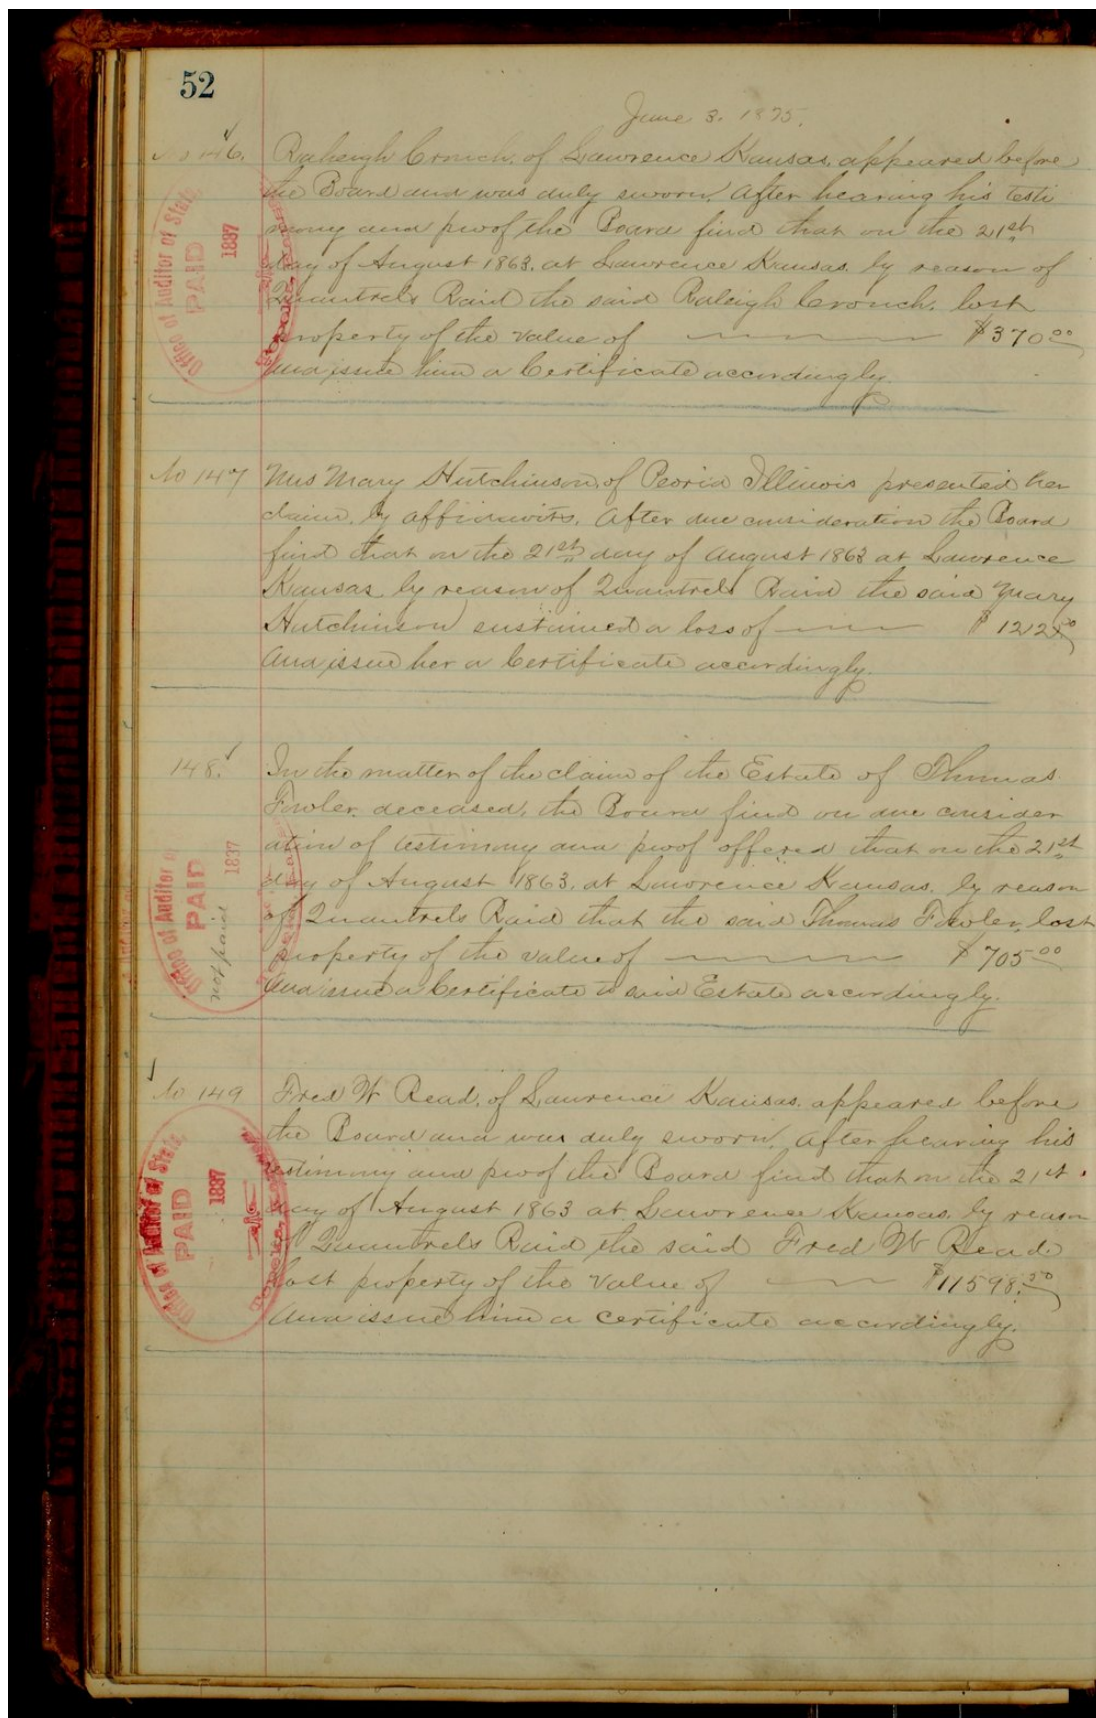 52
June 3. 1875.
No 146. Raleigh Crouch, of Lawrence Kansas, appeared before
the Board and was duly sworn. After hearing his testi
mony and proof the Board find that on the 21st
day of August 1863. at Lawrence Kansas. by reason of
Quantrels Raid the said Raleigh Crouch. lost
property of the value of $370.00
And issue him a Certificate accordingly.
Office of Auditor of State
PAID
1887
Topeka, Kansas
No 147 Mrs Mary Hutchinson, of Peoria Illinois presented her
claim, by affidavits. After due consideration the Board
find that on the 21st day of August 1863 at Lawrence
Kansas by reason of Quantrels Raid the said Mary
Hutchinson sustained a loss of
And issue her a Certificate accordingly.
148. In the matter of the claim of the Estate of Thomas
Fowler, deceased, the Board find on due consider
ation of testimony and proof offered that on the 21st
day of August 1863. at Lawrence Kansas. by reason
of Quantrels Raid that the said Thomas Fowler, lost
property of the value of $705.00
And issue a Certificate to said Estate accordingly.
Office of Auditor of
PAID
1887
not paid
No 149 Fred W Read. of Lawrence Kansas. appeared before
the Board and was duly sworn. After hearing his
testimony and proof the Board find that on the 21st
day of August 1863 at Lawrence Kansas. by reason
of Quantrels Raid the said Fred W Read.
lost property of the value of $11598.50
And issue him a certificate accordingly.
Office of Auditor of State,
PAID
1887
Topeka, Kansas